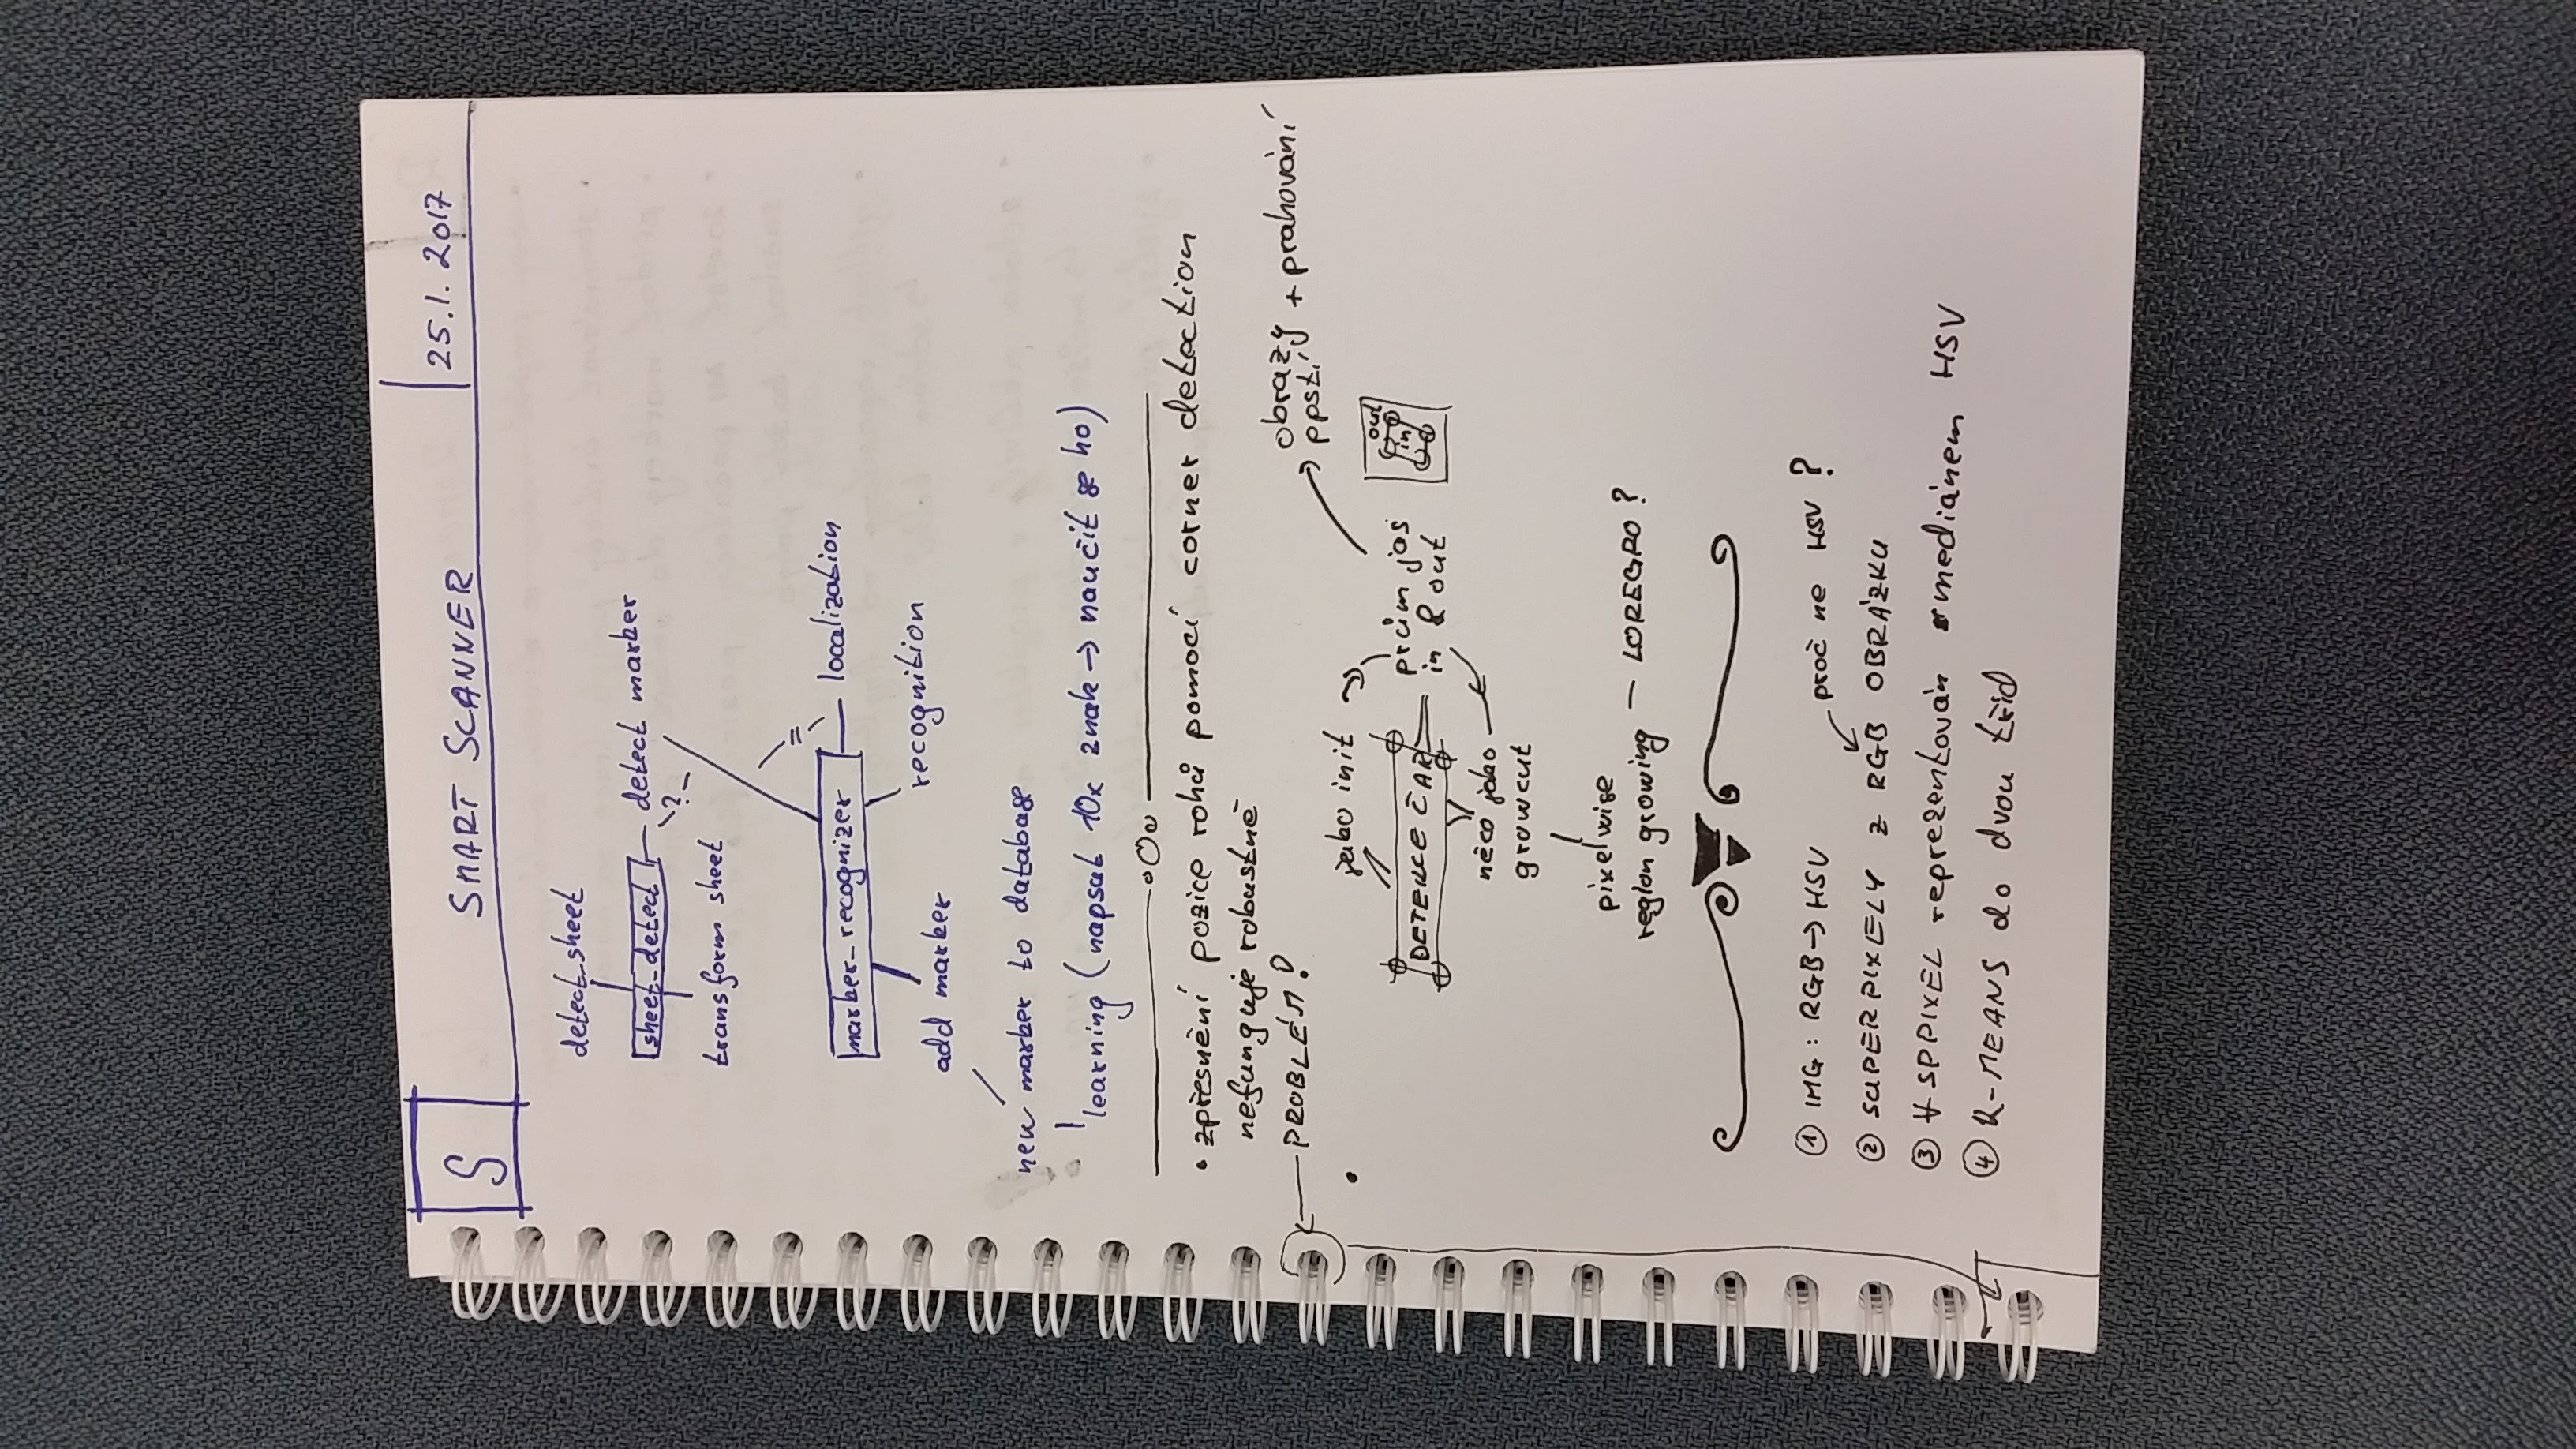 S
SMART SCANNER
25.1.2017
detect_sheet
sheet_detect
detect marker
?
transform sheet
=
marker_recognizer
localization
recognition
add marker
new marker to database
learning (napsat 10x znak → naučit se ho)
• zpřesnění pozice rohů pomocí corner detection
nefunguje robustně
PROBLÉM!
obrazy + prahování
ppstí
jako init
DETEKCE ČAR
prům jas
in & out
out
in
něco jako
growcut
pixelwise
region growing — LOREGRO?
① IMG: RGB → HSV
proč ne HSV?
② SUPERPIXELY Z RGB OBRÁZKU
③ ∀ SPPIXEL reprezentován mediánem HSV
④ K-MEANS do dvou tříd